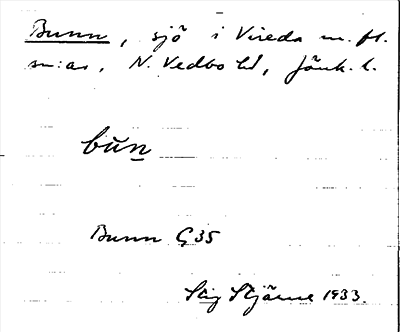 Bunn, sjö i Vireda m. fl.
sn:ar, N. Vedbo hd, Jönk. l.
bŭn̲
Bunn G35
Stig Stjärne 1933.